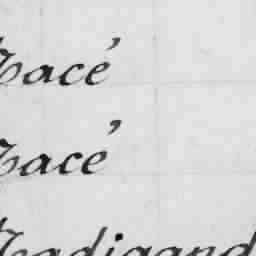 Macé
Macé
Madigand